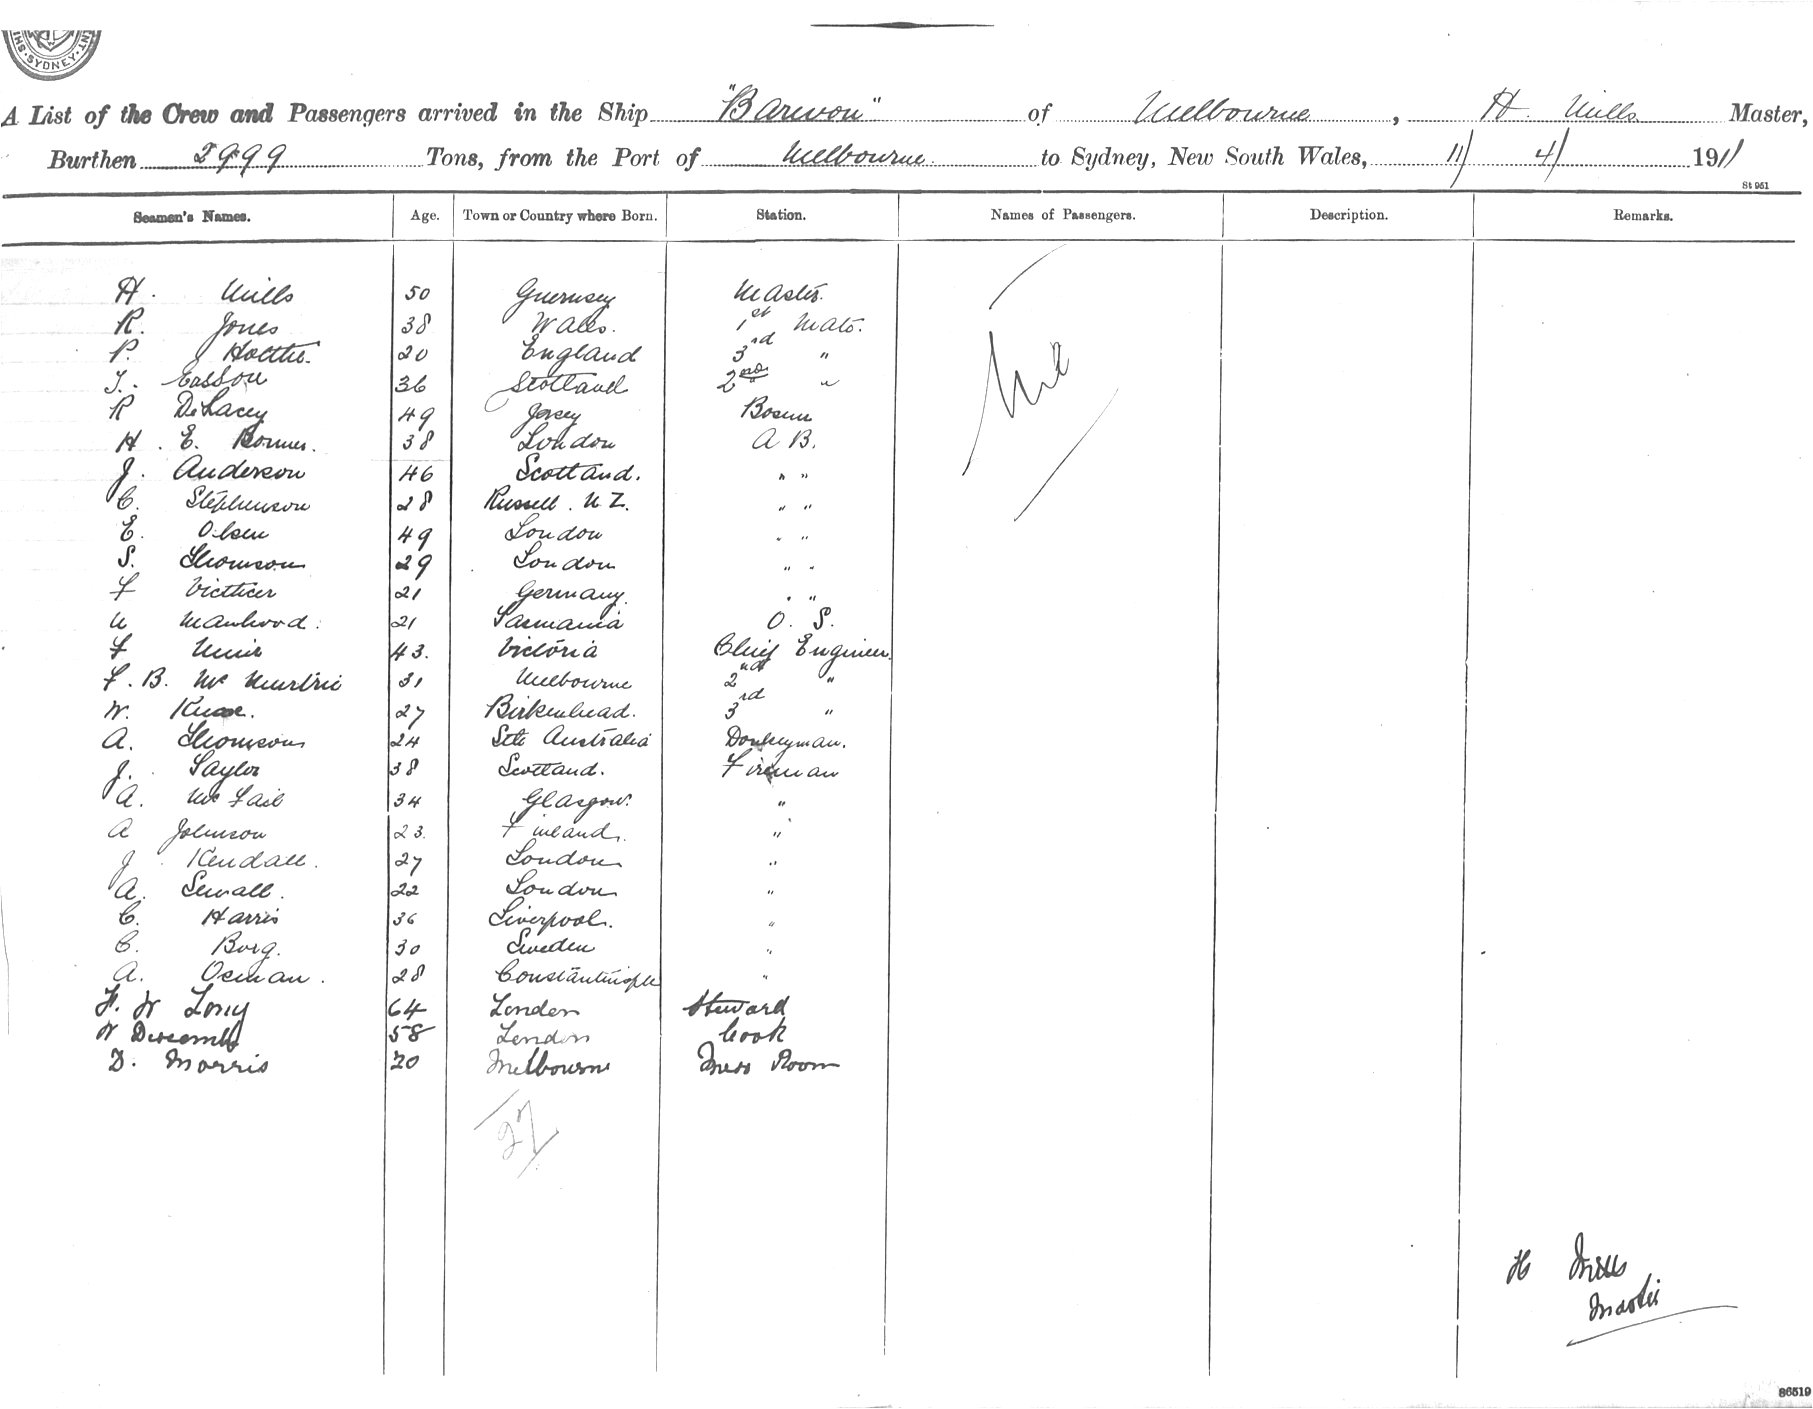 SYDNEY
A List of the Crew and Passengers arrived in the Ship "Barwon" of Melbourne, H. Mills Master,
Burthen 2999 Tons, from the Port of Melbourne to Sydney, New South Wales, 11/ 4/ 1911
St 961
Seamen's Names. Age. Town or Country where Born. Station. Names of Passengers. Description. Remarks.
H. Mills 50 Guernsey Master.
R. Jones 38 Wales. 1st Mate.
P. 20 England 3rd "
T. Easson 36 Scotland 2nd "
R DeLacey 49 Jersey Bosun
H. E. Bonner. 38 London A B.
J. Anderson 46 Scotland. " "
C. Stephenson 28 Russell. N Z. " "
E. Olsen 49 London " "
S. Thomson 29 London " "
F 21 Germany. " "
Manhood. 21 Tasmania O. S.
F Muir 43. Victoria Chief Engineer.
F. B. Mc Murtrie 31 Melbourne 2nd "
W. 27 Birkenhead. 3rd "
A. Thomson 24 Sth Australia Donkeyman.
J. Taylor 38 Scotland. Fireman
A. Mc Fail 34 Glasgow. "
A Johnson 23. Finland. "
J. Kendall. 27 London "
A. Sewall. 22 London "
C. Harris 36 Liverpool. "
C. Borg. 30 Sweden "
A. Osman. 28 Constantinople "
F. W Long 64 London Steward
W 58 London Cook
D. Morris 20 Melbourne Mess Room
Nil
27
H Mills
Master
86519